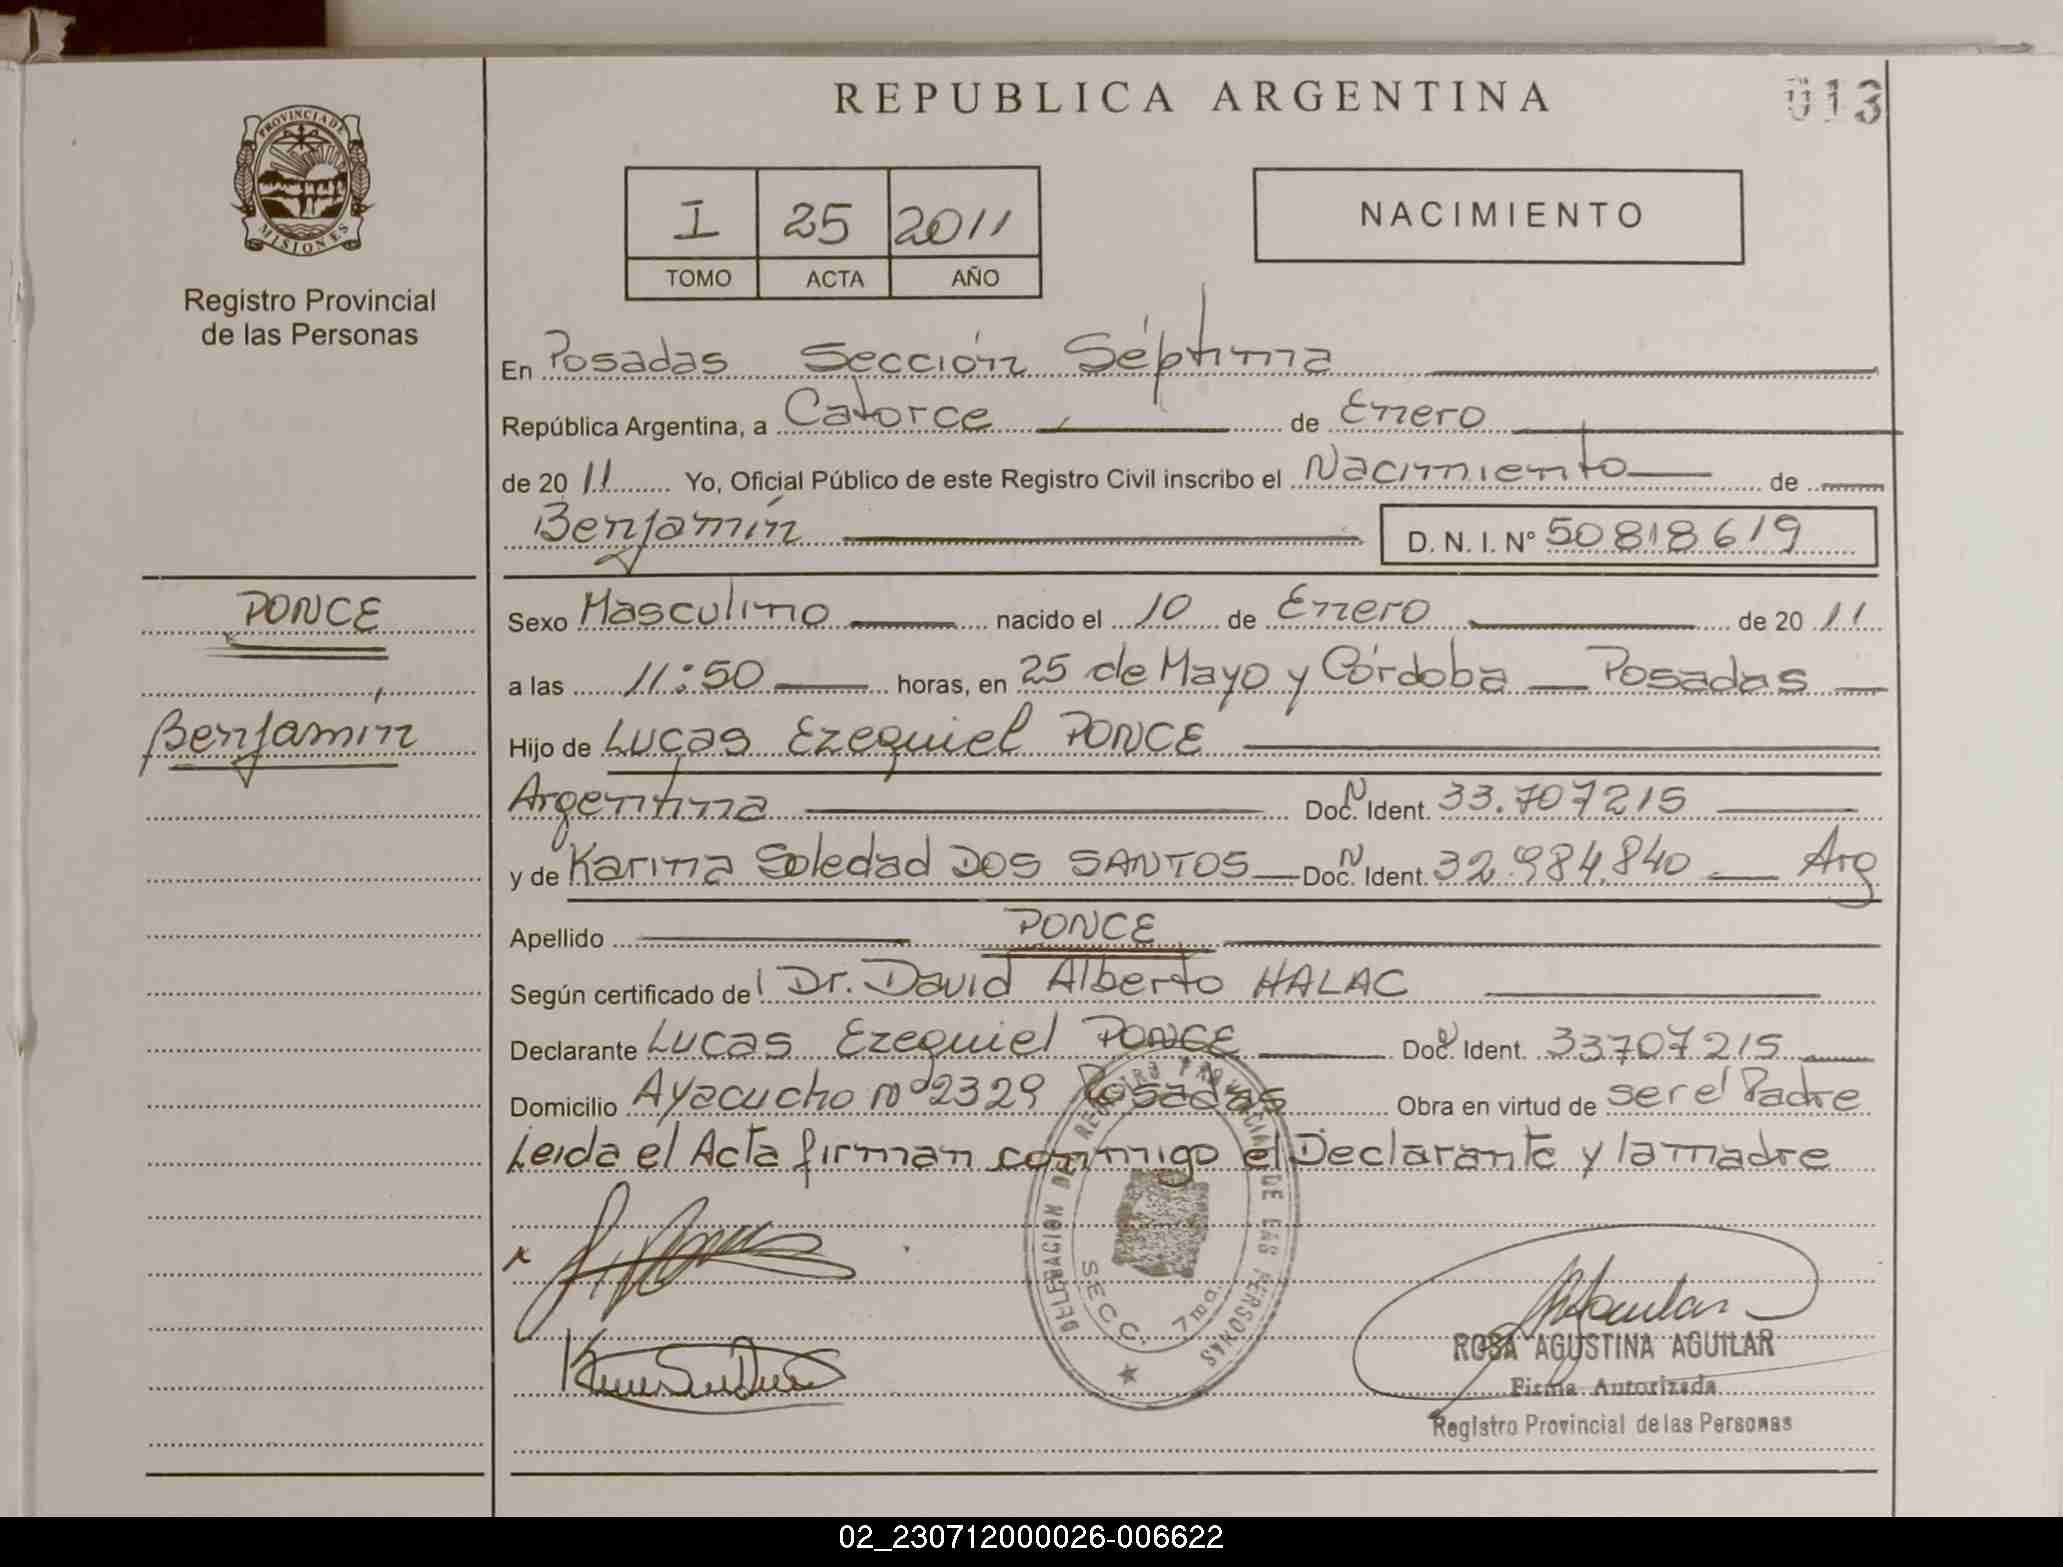 REPUBLICA ARGENTINA
013
PROVINCIA DE
MISIONES
Registro Provincial
de las Personas
I 25 2011
TOMO ACTA AÑO
NACIMIENTO
En Posadas Sección Séptima
República Argentina, a Catorce de Enero
de 20 11 Yo, Oficial Público de este Registro Civil inscribo el Nacimiento de
Benjamín D. N. I. N° 50818619
PONCE
Benjamín
Sexo Masculino nacido el 10 de Enero de 20 11
a las 11:50 horas, en 25 de Mayo y Córdoba Posadas
Hijo de Lucas Ezequiel PONCE
Argentina Doc. N Ident. 33.707215
y de Karina Soledad DOS SANTOS Doc. N Ident. 32.984.840 Arg
Apellido PONCE
Según certificado del Dr. David Alberto HALAC
Declarante Lucas Ezequiel PONCE Doc. N Ident. 33707215
Domicilio Ayacucho nº 2329 Posadas Obra en virtud de ser el Padre
Leida el Acta firman conmigo el Declarante y la madre
DELEGACION DEL REGISTRO PROVINCIAL DE LAS PERSONAS
SECC. 7ma.
ROSA AGUSTINA AGUILAR
Firma Autorizada
Registro Provincial de las Personas
02_230712000026-006622